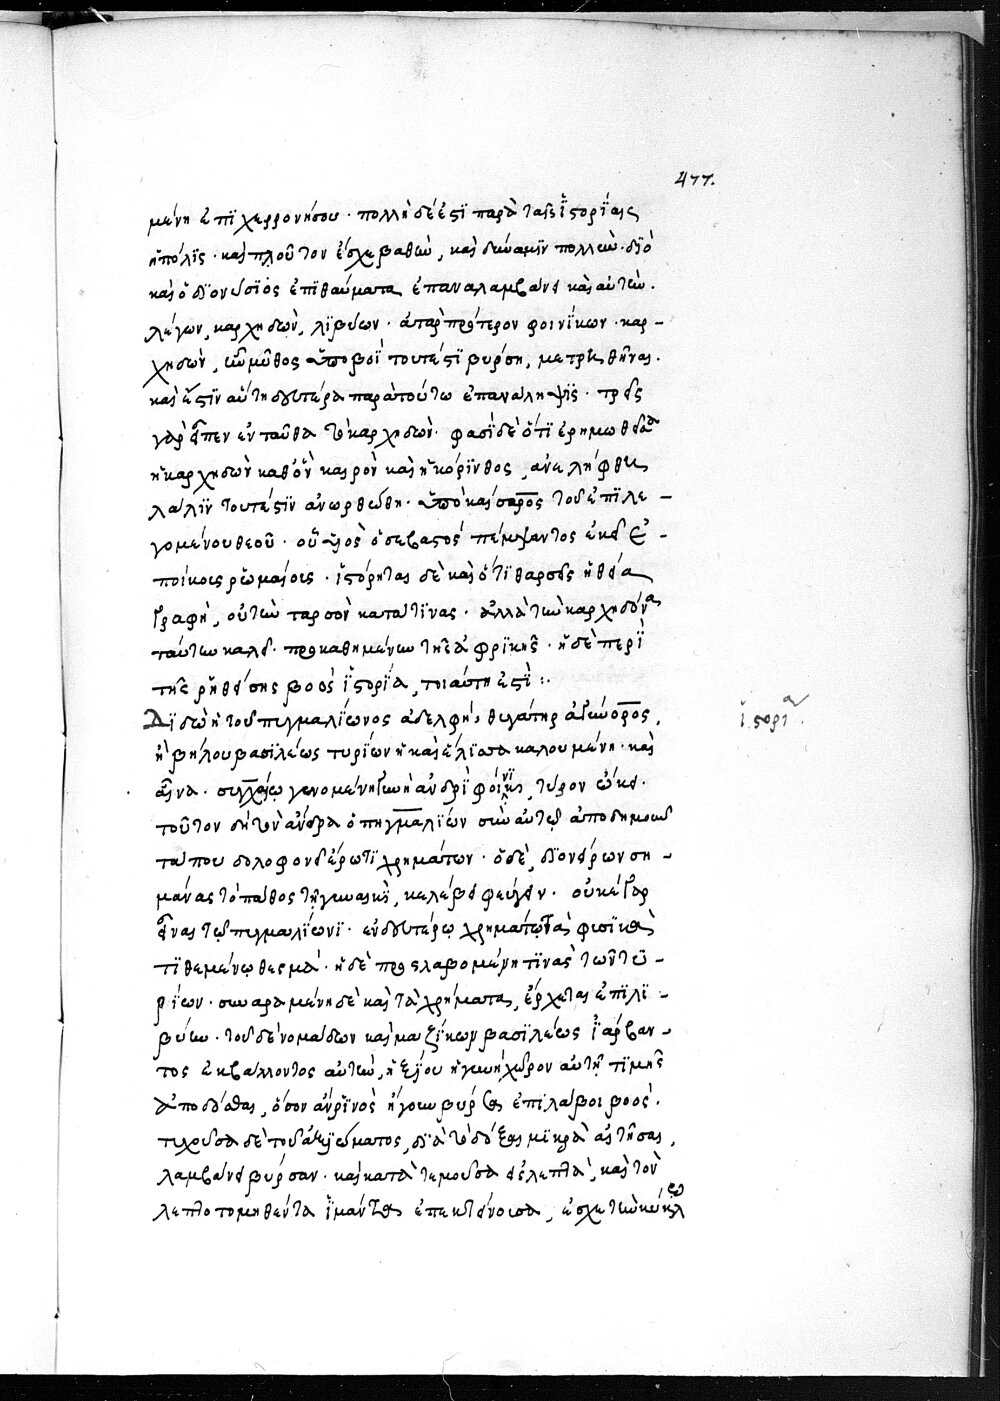 477.
μένη ἐπὶ χερρονήσου · πολλὴ δέ ἐστι παρὰ ταῖς ἱστορίαις
ἡ πόλις · καὶ πλοῦτον ἔσχε βαθὺν, καὶ δύναμιν πολλὴν · διὸ
καὶ ὁ διονύσιος ἐπιθαύματα ἐπαναλαμβάνει καὶ αὐτὴν.
λέγων, καρχηδὼν, λιβύων · ἀτὰρ πρότερον φοινίκων · καρ-
χηδὼν, ἣν μῦθος ὑπὸ βοῒ τουτέστι βύρσῃ, μετρηθῆναι.
καὶ ἔστιν αὕτη δευτέρα παρὰ τούτῳ ἐπανάληψις · τρὶς
γὰρ εἶπεν ἐνταῦθα τὸ καρχηδὼν · φασὶ δὲ ὅτι ἐρημωθεῖσα
ἡ καρχηδὼν καθ' ὃν καιρὸν καὶ ἡ κόρινθος, ἀνελήφθη
πάλιν τουτέστιν ἀνωρθώθη · ὑπὸ καίσαρος τοῦ ἐπιλε-
γομένου θεοῦ · οὗτος ὁ σεβαστός πέμψαντος ἐκεῖ ἐ-
ποίκους ῥωμαίους · ἱστόρηται δὲ καὶ ὅτι θαρσεῖς ἡ θεία
γραφὴ, οὐ τὴν ταρσὸν κατά τινας · ἀλλὰ τὴν καρχηδόνα
ταύτην καλεῖ · προκαθημένην τῆς ἀφρικῆς · ἡ δὲ περὶ
τῆς ῥηθείσης βοὸς ἱστορία, τοιαύτη ἐστὶ :.
Διδὼ ἡ τοῦ πιγμαλίωνος ἀδελφή, θυγάτηρ ἀγήνορος,
ἢ βήλου βασιλέως τυρίων ἡ καὶ ἔλισσα καλουμένη · καὶ
ἄννα · συγχαίῳ γενομένη γυνὴ ἀνδρὶ φοίνικι, τύρον ᾤκει.
τοῦτον δὴ τὸν ἄνδρα ὁ πηγμαλίων σὺν αὐτῷ ἀποδημοῦν
τά που δολοφονεῖ ἔρωτι χρημάτων · ὁ δὲ, δι' ὀνείρων ση-
μάνας τὸ πάθος τῇ γυναικὶ, κελεύει φεύγειν · οὐκ εἴ γὰρ
εἶναι τῷ πιγμαλίωνι · ἐν δευτέρῳ χρημάτων τὰ φυσικὰ
τιθεμένῳ θεσμά · ἡ δὲ προσλαβομένη τινὰς τῶν τυ-
ρίων · συναραμένη δὲ καὶ τὰ χρήματα, ἔρχεται ἐπὶ λι-
βύην · τοῦ δὲ νομάδων καὶ μαζίκων βασιλέως ἰάρβαν-
τος ἐκβάλλοντος αὐτὴν, ἠξίου ἡ γυνὴ χῶρον αὐτῇ τιμῆς
ἀποδόσθαι, ὅσον ἄν ῥινὸς ἤγουν βύρσα ἐπιλάβοι βοός.
τυχοῦσα δὲ τοῦ ἀξιώματος, διὰ τὸ δόξαι μικρὰ αἰτῆσαι,
λαμβάνει βύρσαν · καὶ κατατεμοῦσα εἰς λεπτὰ, καὶ τὸν
λεπτοτομηθέντα ἱμάντα ἐπεκτείνουσα, ἔσχε τὴν κύκλῳ
ἱστορία.